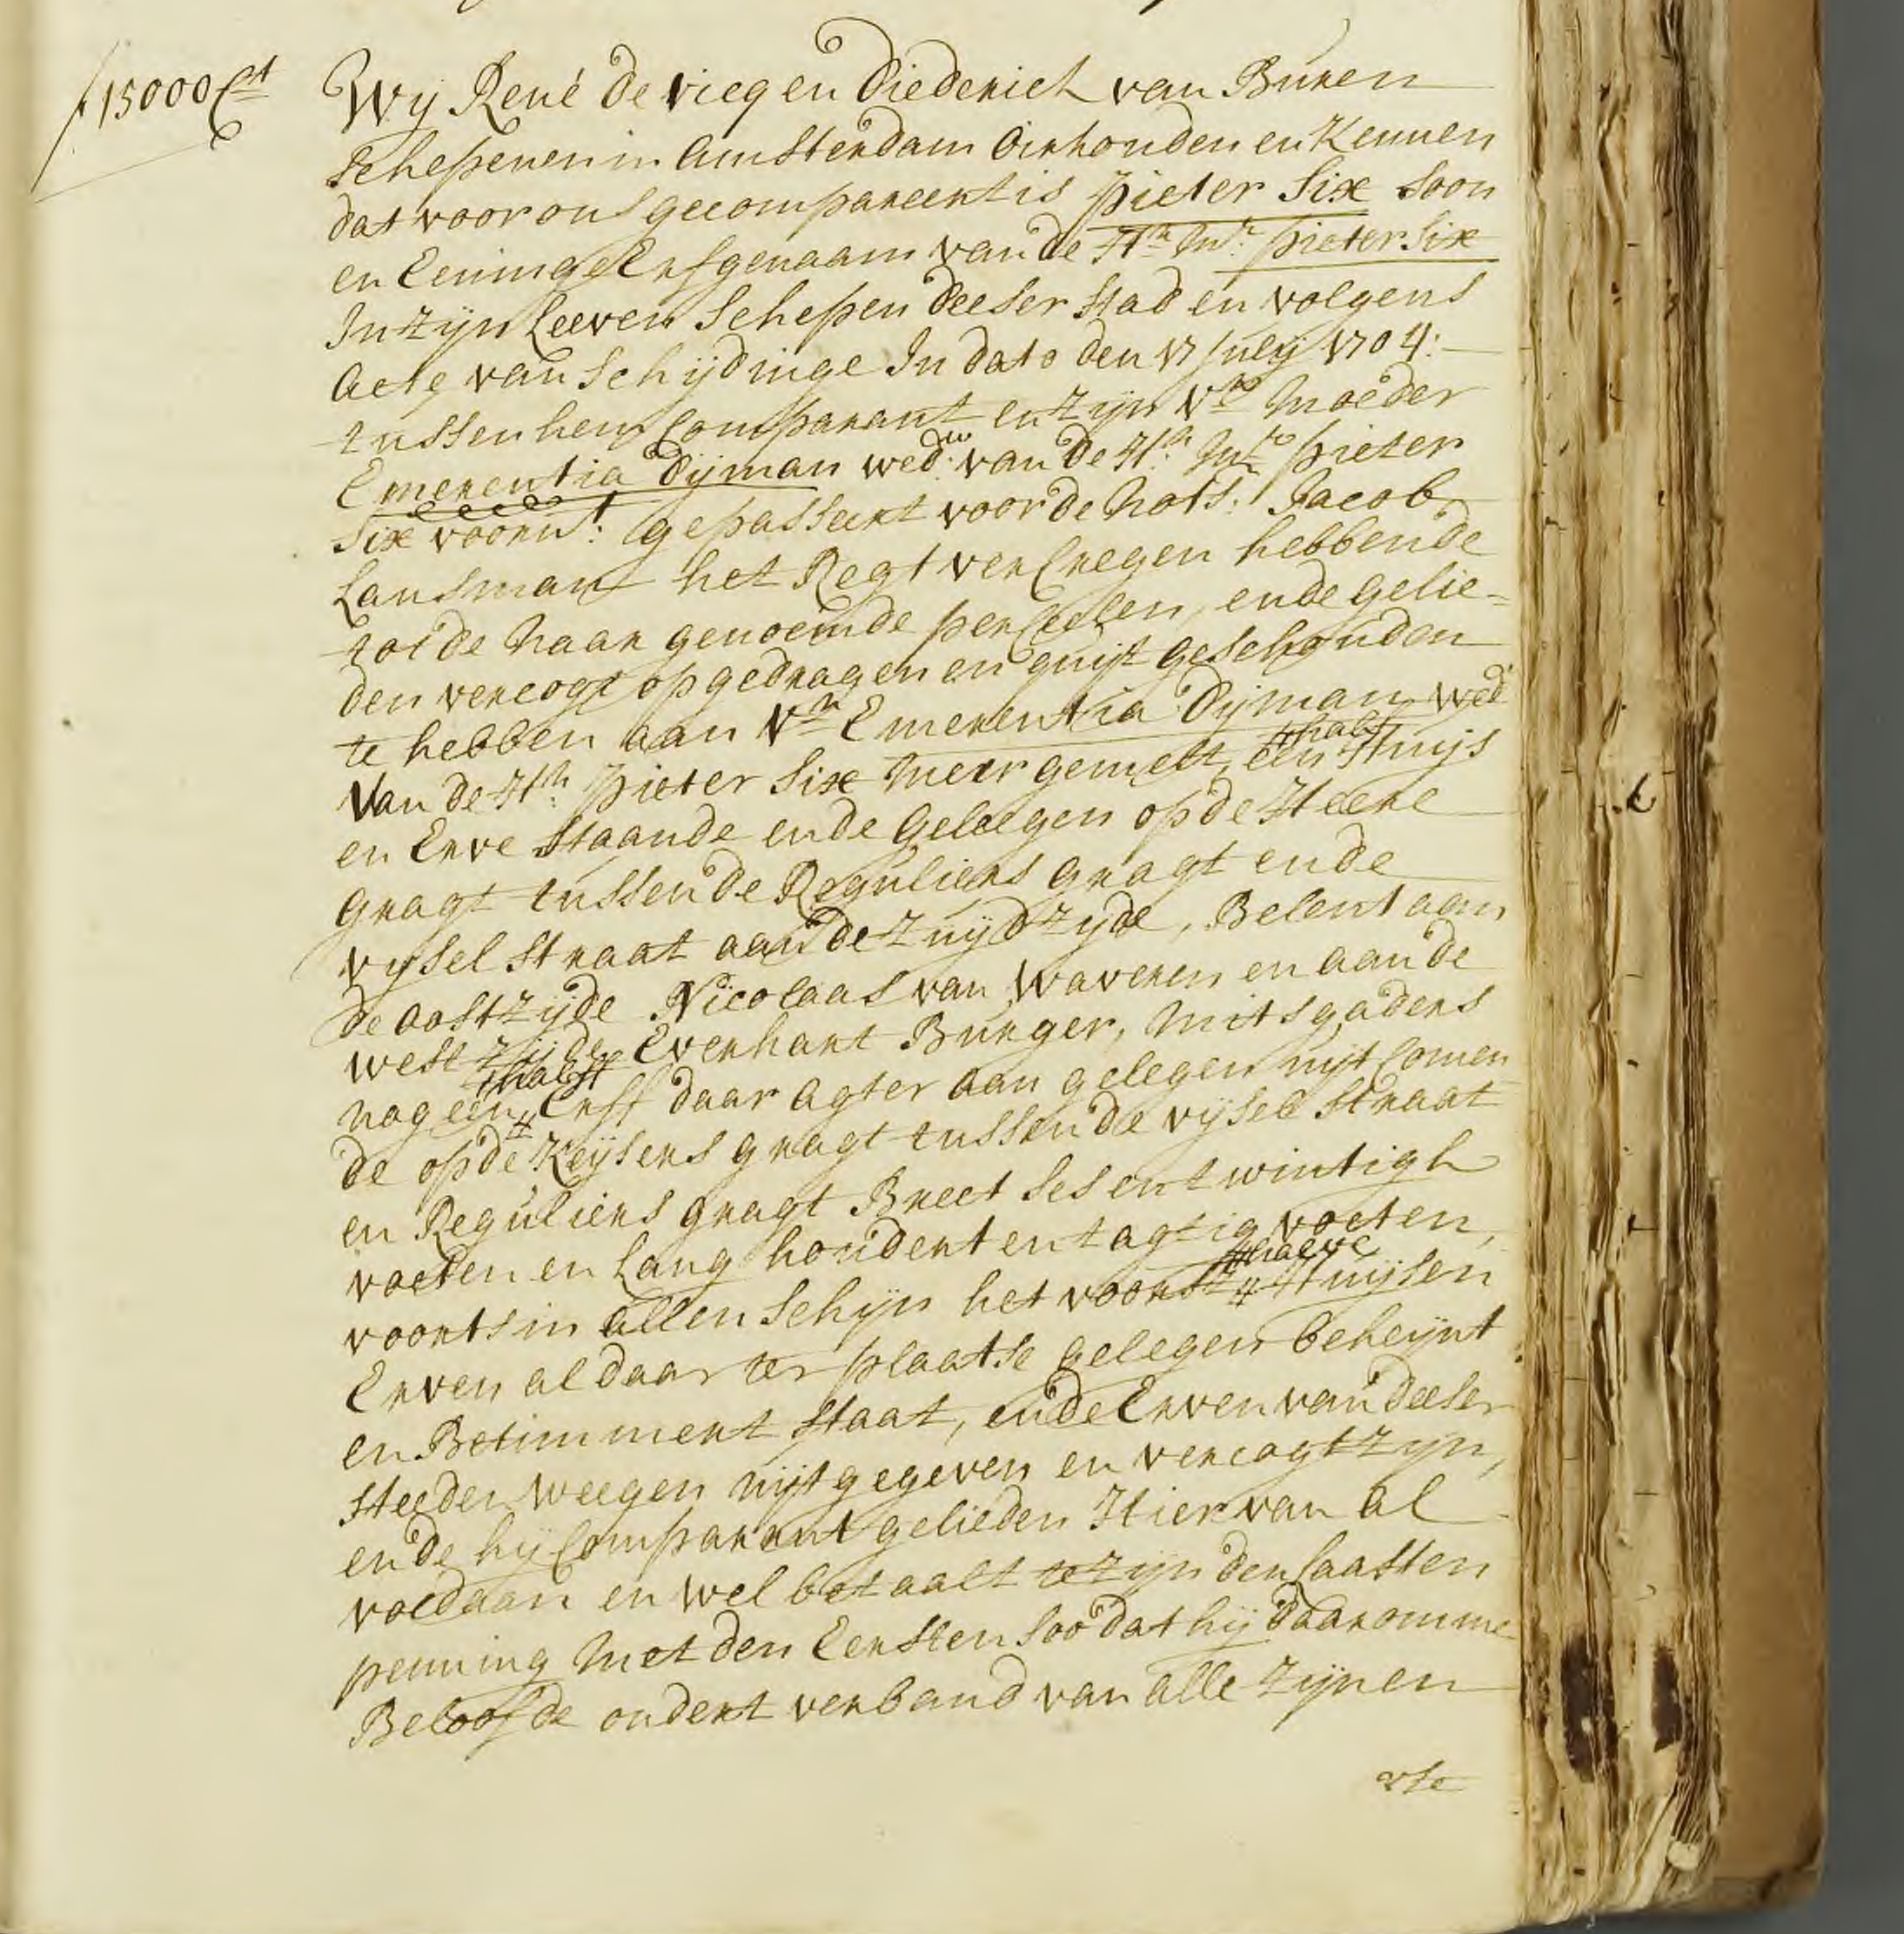 f 15000 Ct
Wij René de vicq en Diederick van Buren
Schepenen in Amsterdam Oirkonden en Kennen
dat voor ons gecompareert is Pieter Six Soon
en Eeninge Erfgenaam van de Hr. Mr. Pieter Six
In zijn Leeven Schepen deeser Stad en volgens
Acte van Schijdinge In dato den 17 Julij 1704:
tussen hem Comparant en zijn Vrw Moeder
Emerentia Dijman wedw. van de Hr. Mr. Pieter
Six voornt: gepasseert voor de Nots: Jacob
Lansman het Regt vercregen hebbende
tot de naar genoemde percelen, ende gelie-
den vercogt opgedragen en quijt geschouden
te hebben aan Vr. Emerentia Dijman wed
Van de Hr. Pieter Six meergemelt, een
thalf
Huijs
en Erve Staande ende Geleegen op de Heere
gragt tussen de Reguliers gragt ende
vijsel straat aan de Zuijd zijde, Belent aan
de oostzijde Nicolaas van Waveren en aan de
west zijde Everhart Burger, mitsgaders
nog een
thalft
Erff daar agter aan gelegen uijt Comen
de op de Keijsers gragt tussen de vijsel straat
en Reguliers gragt Breet Ses en twintigh
voeten en Lang hondert en tagtig voeten,
voorts in allen Schijn het voorsz
halve
Huijsen
Erven aldaar ter plaatse gelegen beheijnt
en Betimmert staat, ende Erven van deeser
Steeden weegen uijtgegeven en vercogt zijn,
ende hij Comparant gelieden Hier van al
voldaan en wel betaalt te zijn den laasten
penning met den Eersten soo dat hij daaromme
Beloofde ondert verband van alle zijnen